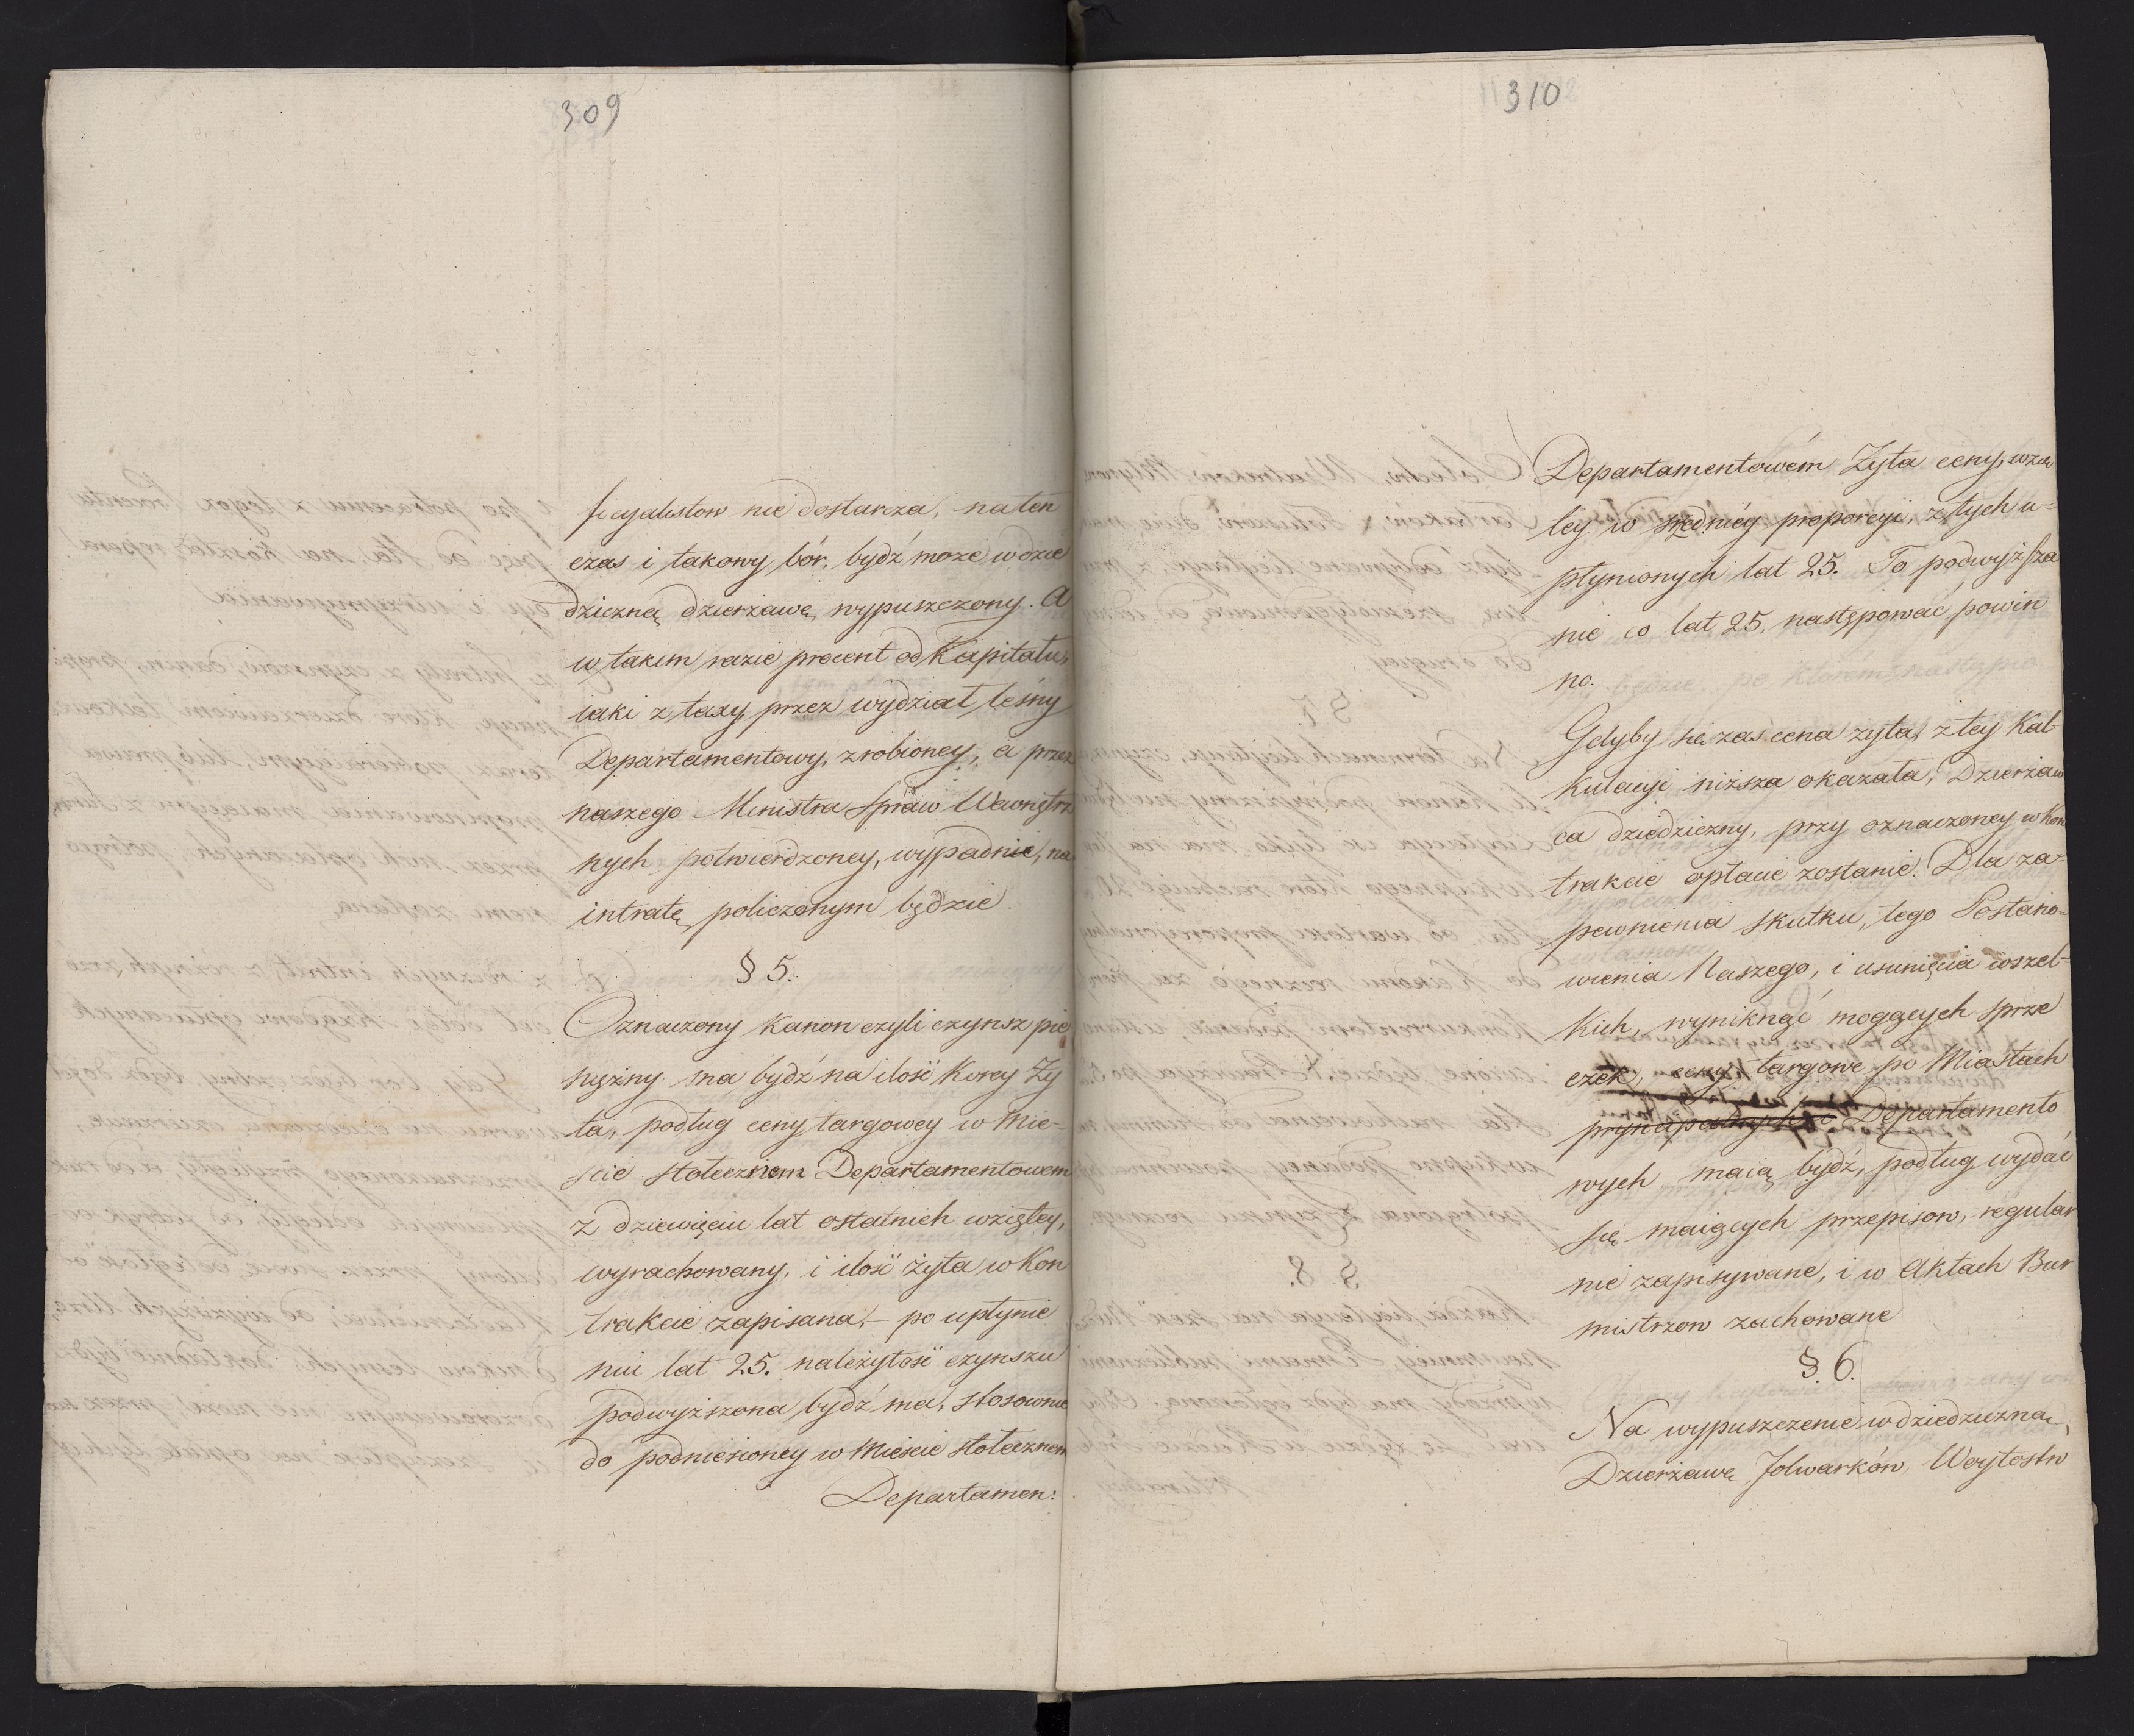 309
ficyalistow nie dostarcza, na ten
czas i takowy bór, bydź może w dzie
dziczną dzierżawę wypuszczony. A
w takim razie procent od Kapitału,
iaki z taxy przez wydział leśny
Departamentowy, zrobioney, a przez
naszego Ministra Spraw Wewnętrz
nych potwierdzoney, wypadnie, na
intratę policzonym będzie.
§ 5.
Oznaczony Kanon czyli czynsz pie
niężny ma bydź na ilość Korcy Ży
ta, podług ceny targowey w Mie-
ście stołecznem Departamentowem
z dziewięciu lat ostatnich wziętey,
wyrachowany, i ilość żyta w Kon
trakcie zapisana, – po upłynie
niu lat 25. należytość czynszu
podwyższona bydź ma, stosownie
do podniesioney w Mieście stołecznem
Departamen:
310
Departamentowém Żyta ceny, wzię
tey w średniéy proporcyi, z tych u-
płynionych lat 25. To podwyższa
nie co lat 25. następować powin
no.
Gdyby się zaś cena żyta, z tey Kal-
kulacyi niższa okazała, Dzierżaw
ca dziedziczny, przy oznaczoney w Kon
trakcie opłacie zostanie. Dla za-
pewnienia skutku, tego Postano-
wienia Naszego, i usunięcia wszel-
kich, wyniknąć mogących sprze
czek, ceny targowe po Miastach
pryncypalnych i Departamento
wych maią bydź, podług wydać
się maiących przepisow, regular
nie zapisywane, i w Aktach Bur
mistrzow zachowane
§. 6.
Na wypuszczenie w dziedziczną
Dzierżawę folwarków, Woytostw